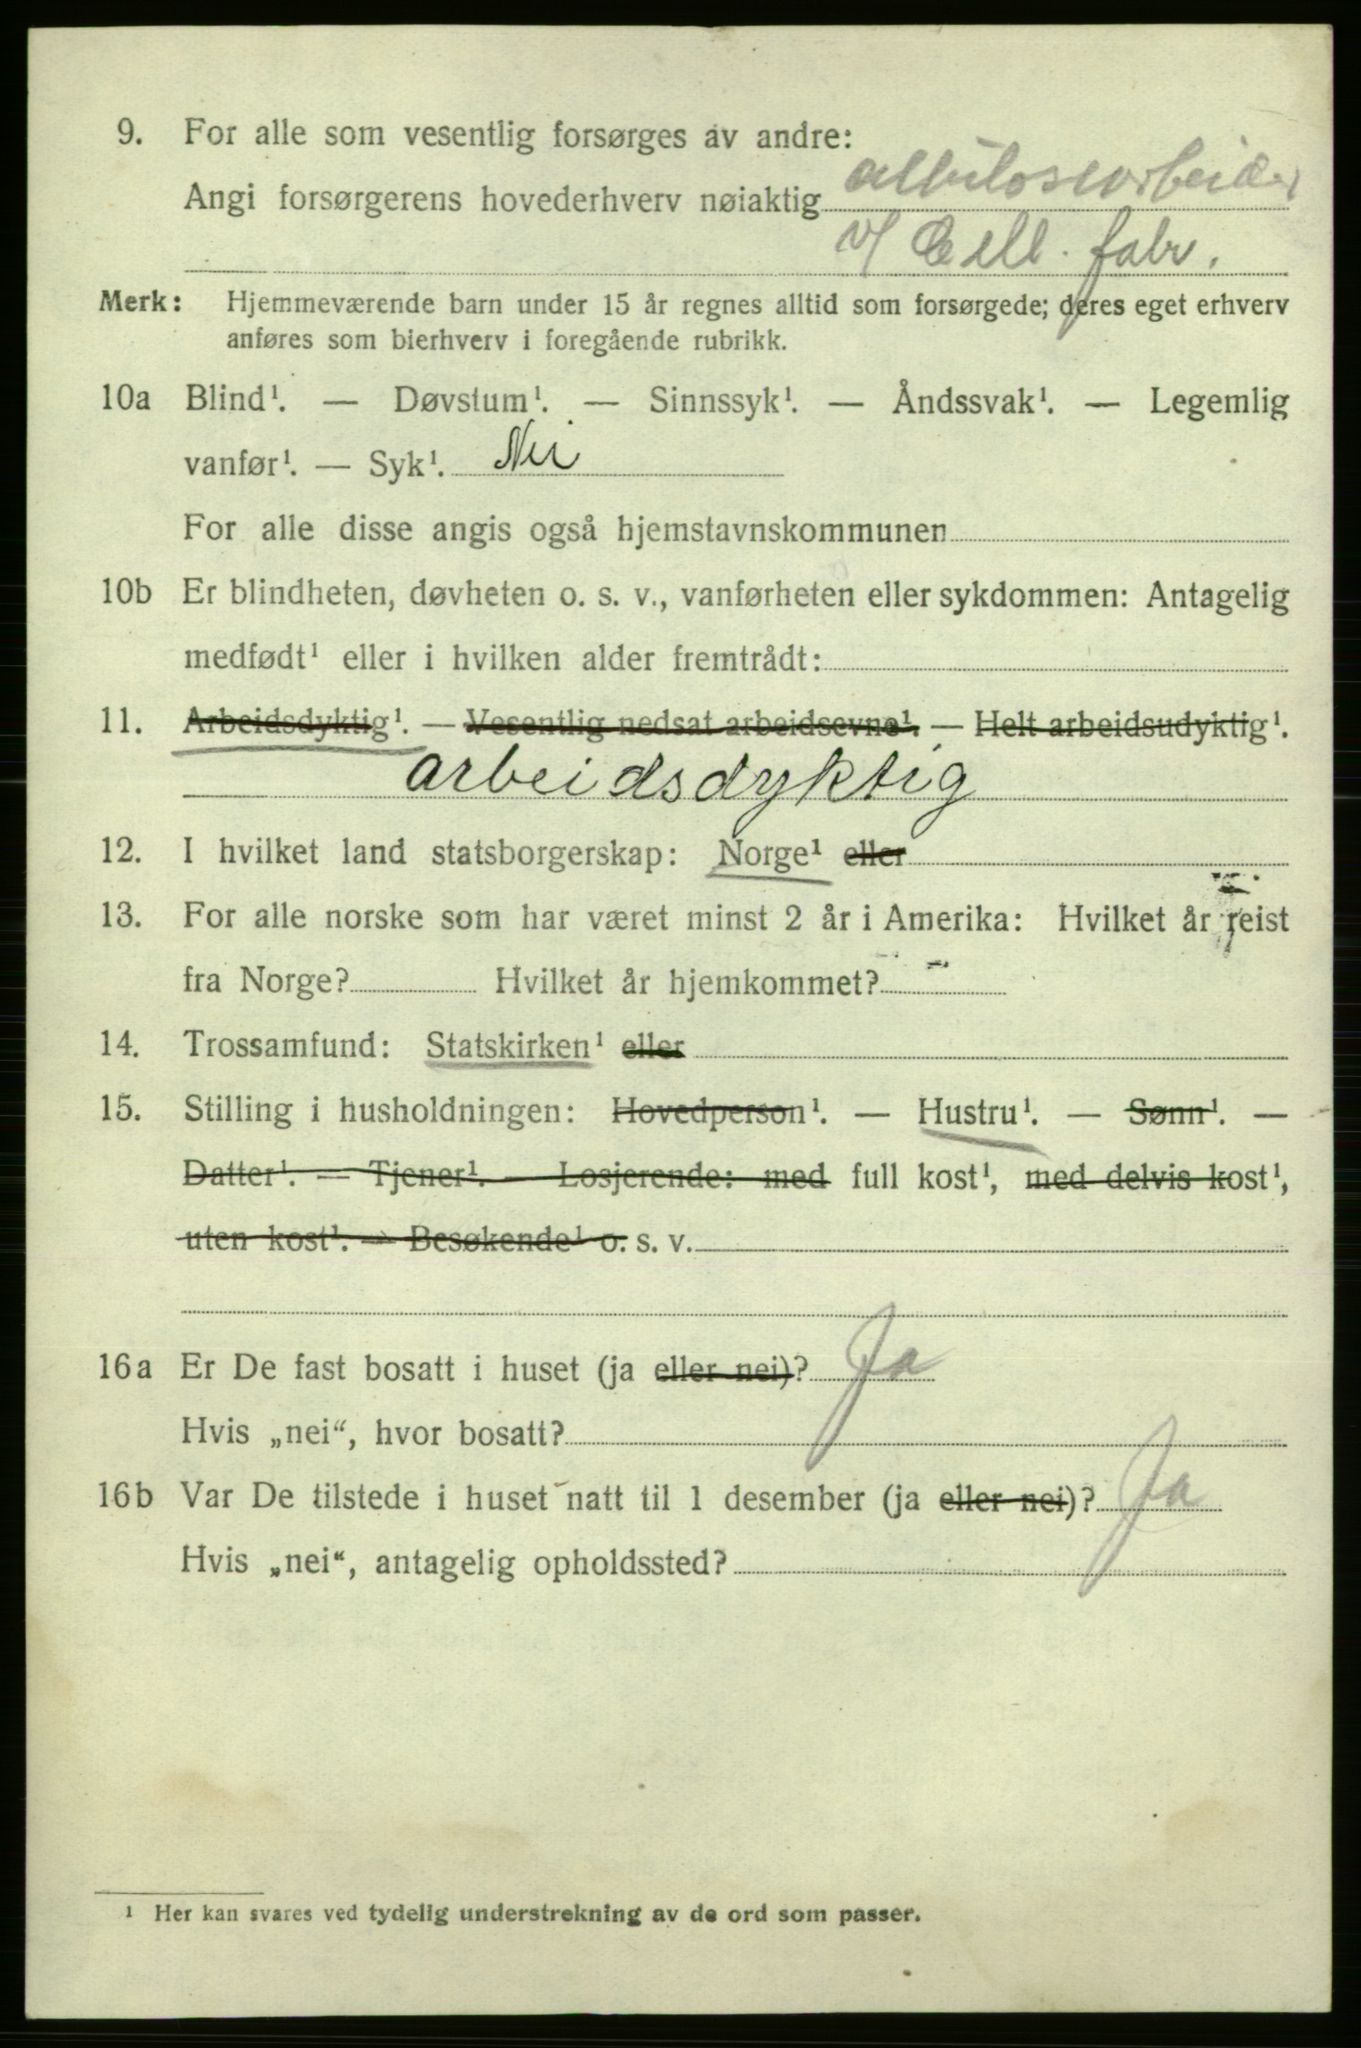 9. For alle som vesentlig forsørges av andre:
Angi forsørgerens hovederhverv nøiaktig cellulosearbeider
v/ Cell. fabr.
Merk: Hjemmeværende barn under 15 år regnes alltid som forsørgede; deres eget erhverv
anføres som bierhverv i foregående rubrikk.
10a Blind¹. — Døvstum¹. — Sinnssyk¹. — Åndssvak¹. — Legemlig
vanfør¹. — Syk¹. Nei
For alle disse angis også hjemstavnskommunen
10b Er blindheten, døvheten o. s. v., vanførheten eller sykdommen: Antagelig
medfødt¹ eller i hvilken alder fremtrådt:
11. Arbeidsdyktig¹. — Vesentlig nedsat arbeidsevne¹. — Helt arbeidsudyktig¹.
arbeidsdyktig
12. I hvilket land statsborgerskap: Norge¹ eller
13. For alle norske som har været minst 2 år i Amerika: Hvilket år reist
fra Norge? Hvilket år hjemkommet? —
14. Trossamfund: Statskirken¹ eller
15. Stilling i husholdningen: Hovedperson¹. — Hustru¹. — Sønn¹. —
Datter¹. — Tjener¹. — Losjerende: med full kost¹, med delvis kost¹,
uten kost¹. — Besøkende¹ o. s. v.
16a Er De fast bosatt i huset (ja eller nei)? Ja
Hvis „nei“, hvor bosatt?
16b Var De tilstede i huset natt til 1 desember (ja eller nei)? Ja
Hvis „nei“, antagelig opholdssted?
¹ Her kan svares ved tydelig understrekning av de ord som passer.